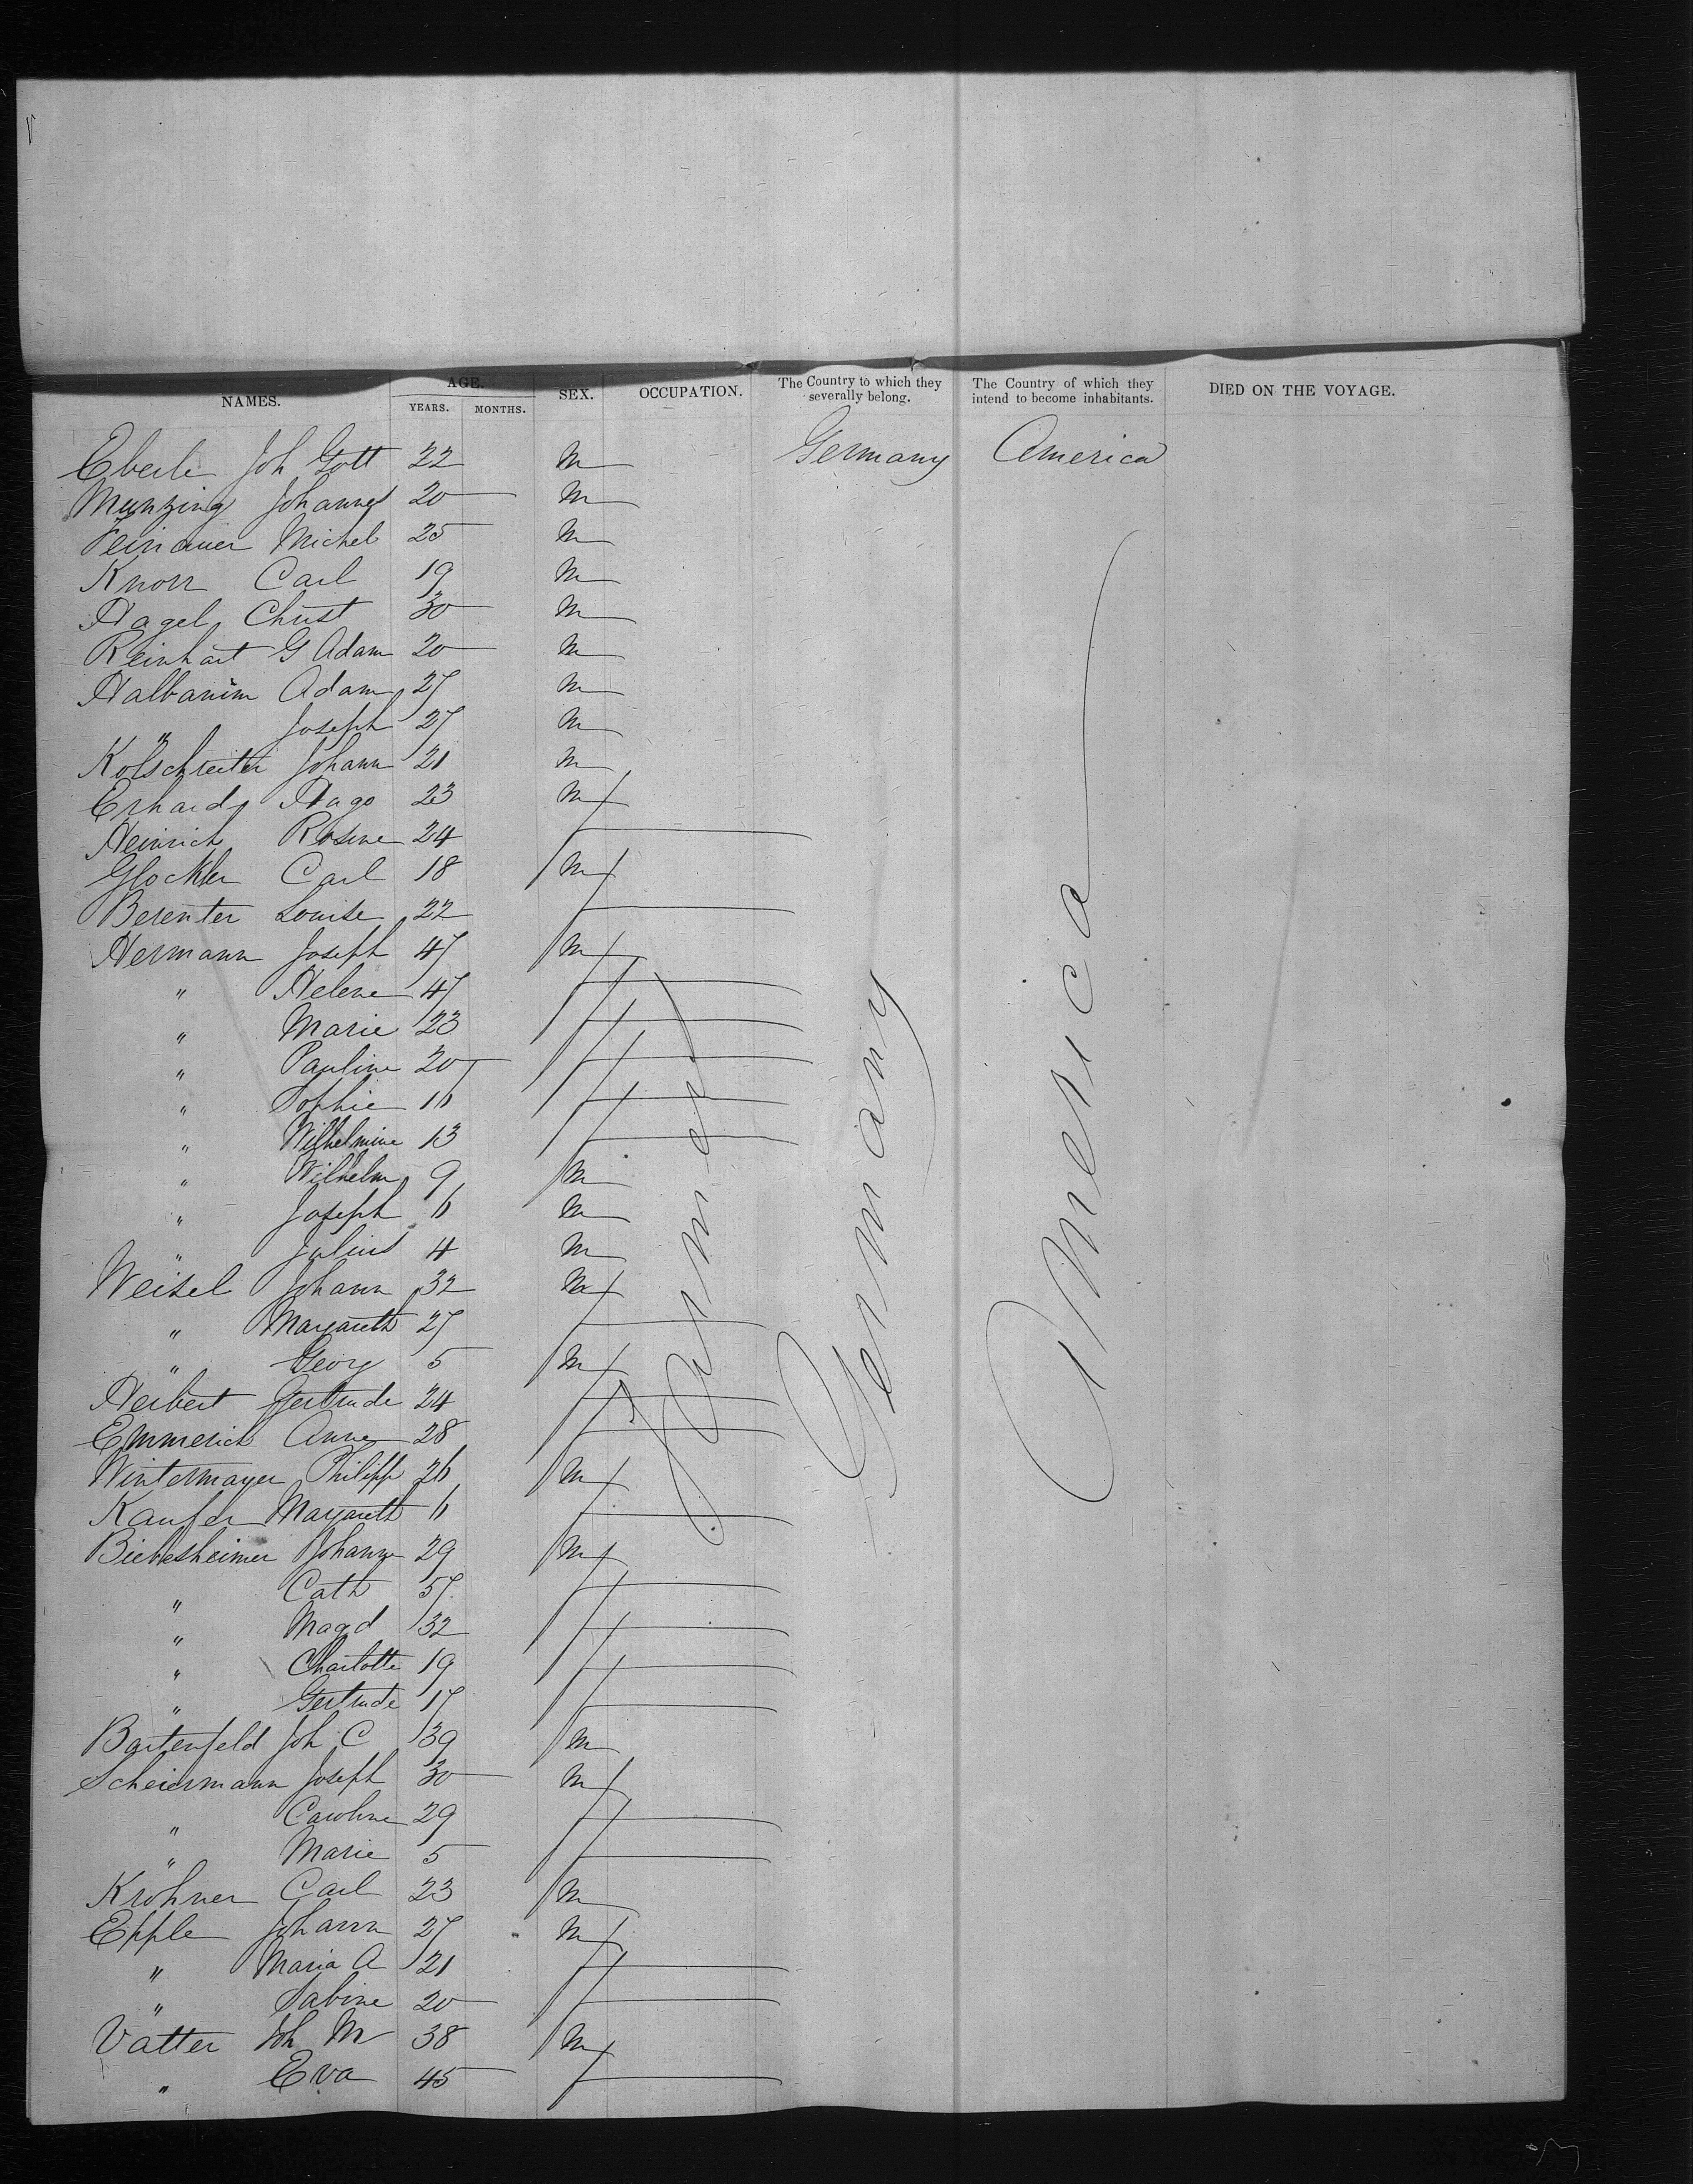 NAMES. AGE. YEARS. MONTHS. SEX. OCCUPATION. The Country to which they severally belong. The Country of which they intend to become inhabitants. DIED ON THE VOYAGE.
Eberle Joh Gott 22 M Germany America
Munzing Johannes 20 M
Feinauer Michel 25 M
Knorr Carl 19 M
Nagel Christ 30 M
Reinhart G Adam 20 M
Adam 27 M
" Joseph 27 M
Johann 21 M
Erhard 23 M
Heinrich Rosine 24 f
Glockler Carl 18 M
Berenter Louise 22 f
Hermann Joseph 47 M
" Helene 47 f
" Marie 23 f
" Pauline 20 f
" Sophie 16 f
" Wilhelmine 13 f
" Wilhelm 9 M
" Joseph 6 M
" Julius 4 M
Weisel Johann 32 M
" Margareth 27 f
" Georg 5 M
Herbert Gertrude 24 f
Emmerich Anne 28 f
Wintermayer Philipp 26 M
Kaufer Margareth 6 f
Biebesheimer Johann 29 M
" Cath 57 f
" Magd 32 f
" Charlotte 19 f
" Gertrude 17 f
Bartenfeld Joh C 39 M
Scheiermann Joseph 30 M
" Caroline 29 f
" Marie 5 f
Krohner Carl 23 M
Epple Johann 27 M
" Maria A 21 f
" Sabine 20 f
Vatter Joh M 38 M
" Eva 45 f
Farmer
Germany
America